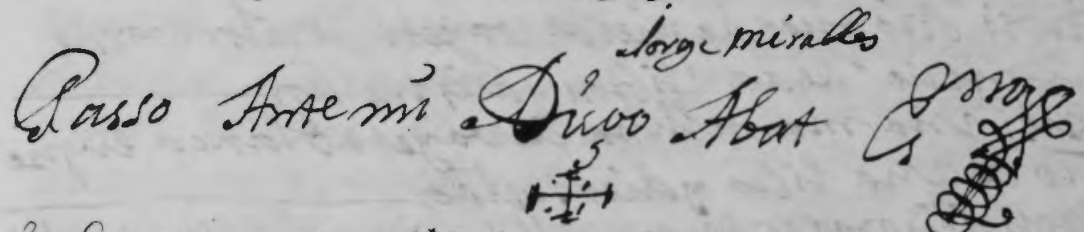 Jorge miralles
Passo Ante mi Diego Abat